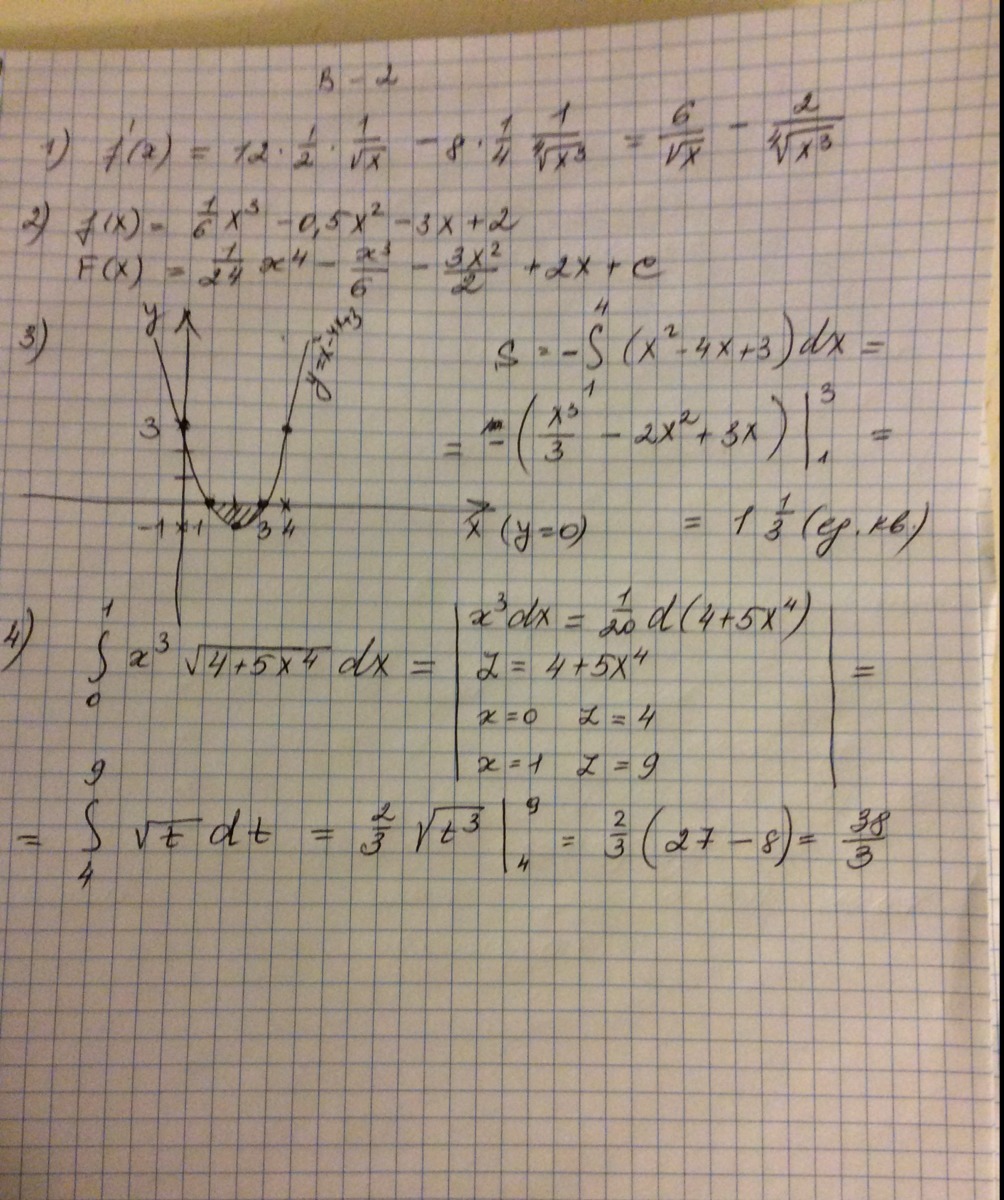 В - 2
1) f'(x) = 12 · 1/2 · 1/√x - 8 · 1/4 1/∜x³ = 6/√x - 2/∜x³
2) f(x) = 1/6 x³ - 0,5x² - 3x + 2
F(x) = 1/24 x⁴ - x³/6 - 3x²/2 + 2x + c
3) y y=x²-4x+3 S = -∫₁⁴ (x²-4x+3)dx =
3 = -(x³/3 - 2x² + 3x)|₁³ =
-1 1 3 4 x (y=0) = 1 1/3 (ед. кв.)
4) ∫₀¹ x³ √(4+5x⁴) dx = | x³dx = 1/20 d(4+5x⁴)
z = 4+5x⁴ | =
x=0 z=4
x=1 z=9
= ∫₄⁹ √t dt = 2/3 √t³ |₄⁹ = 2/3 (27 - 8) = 38/3